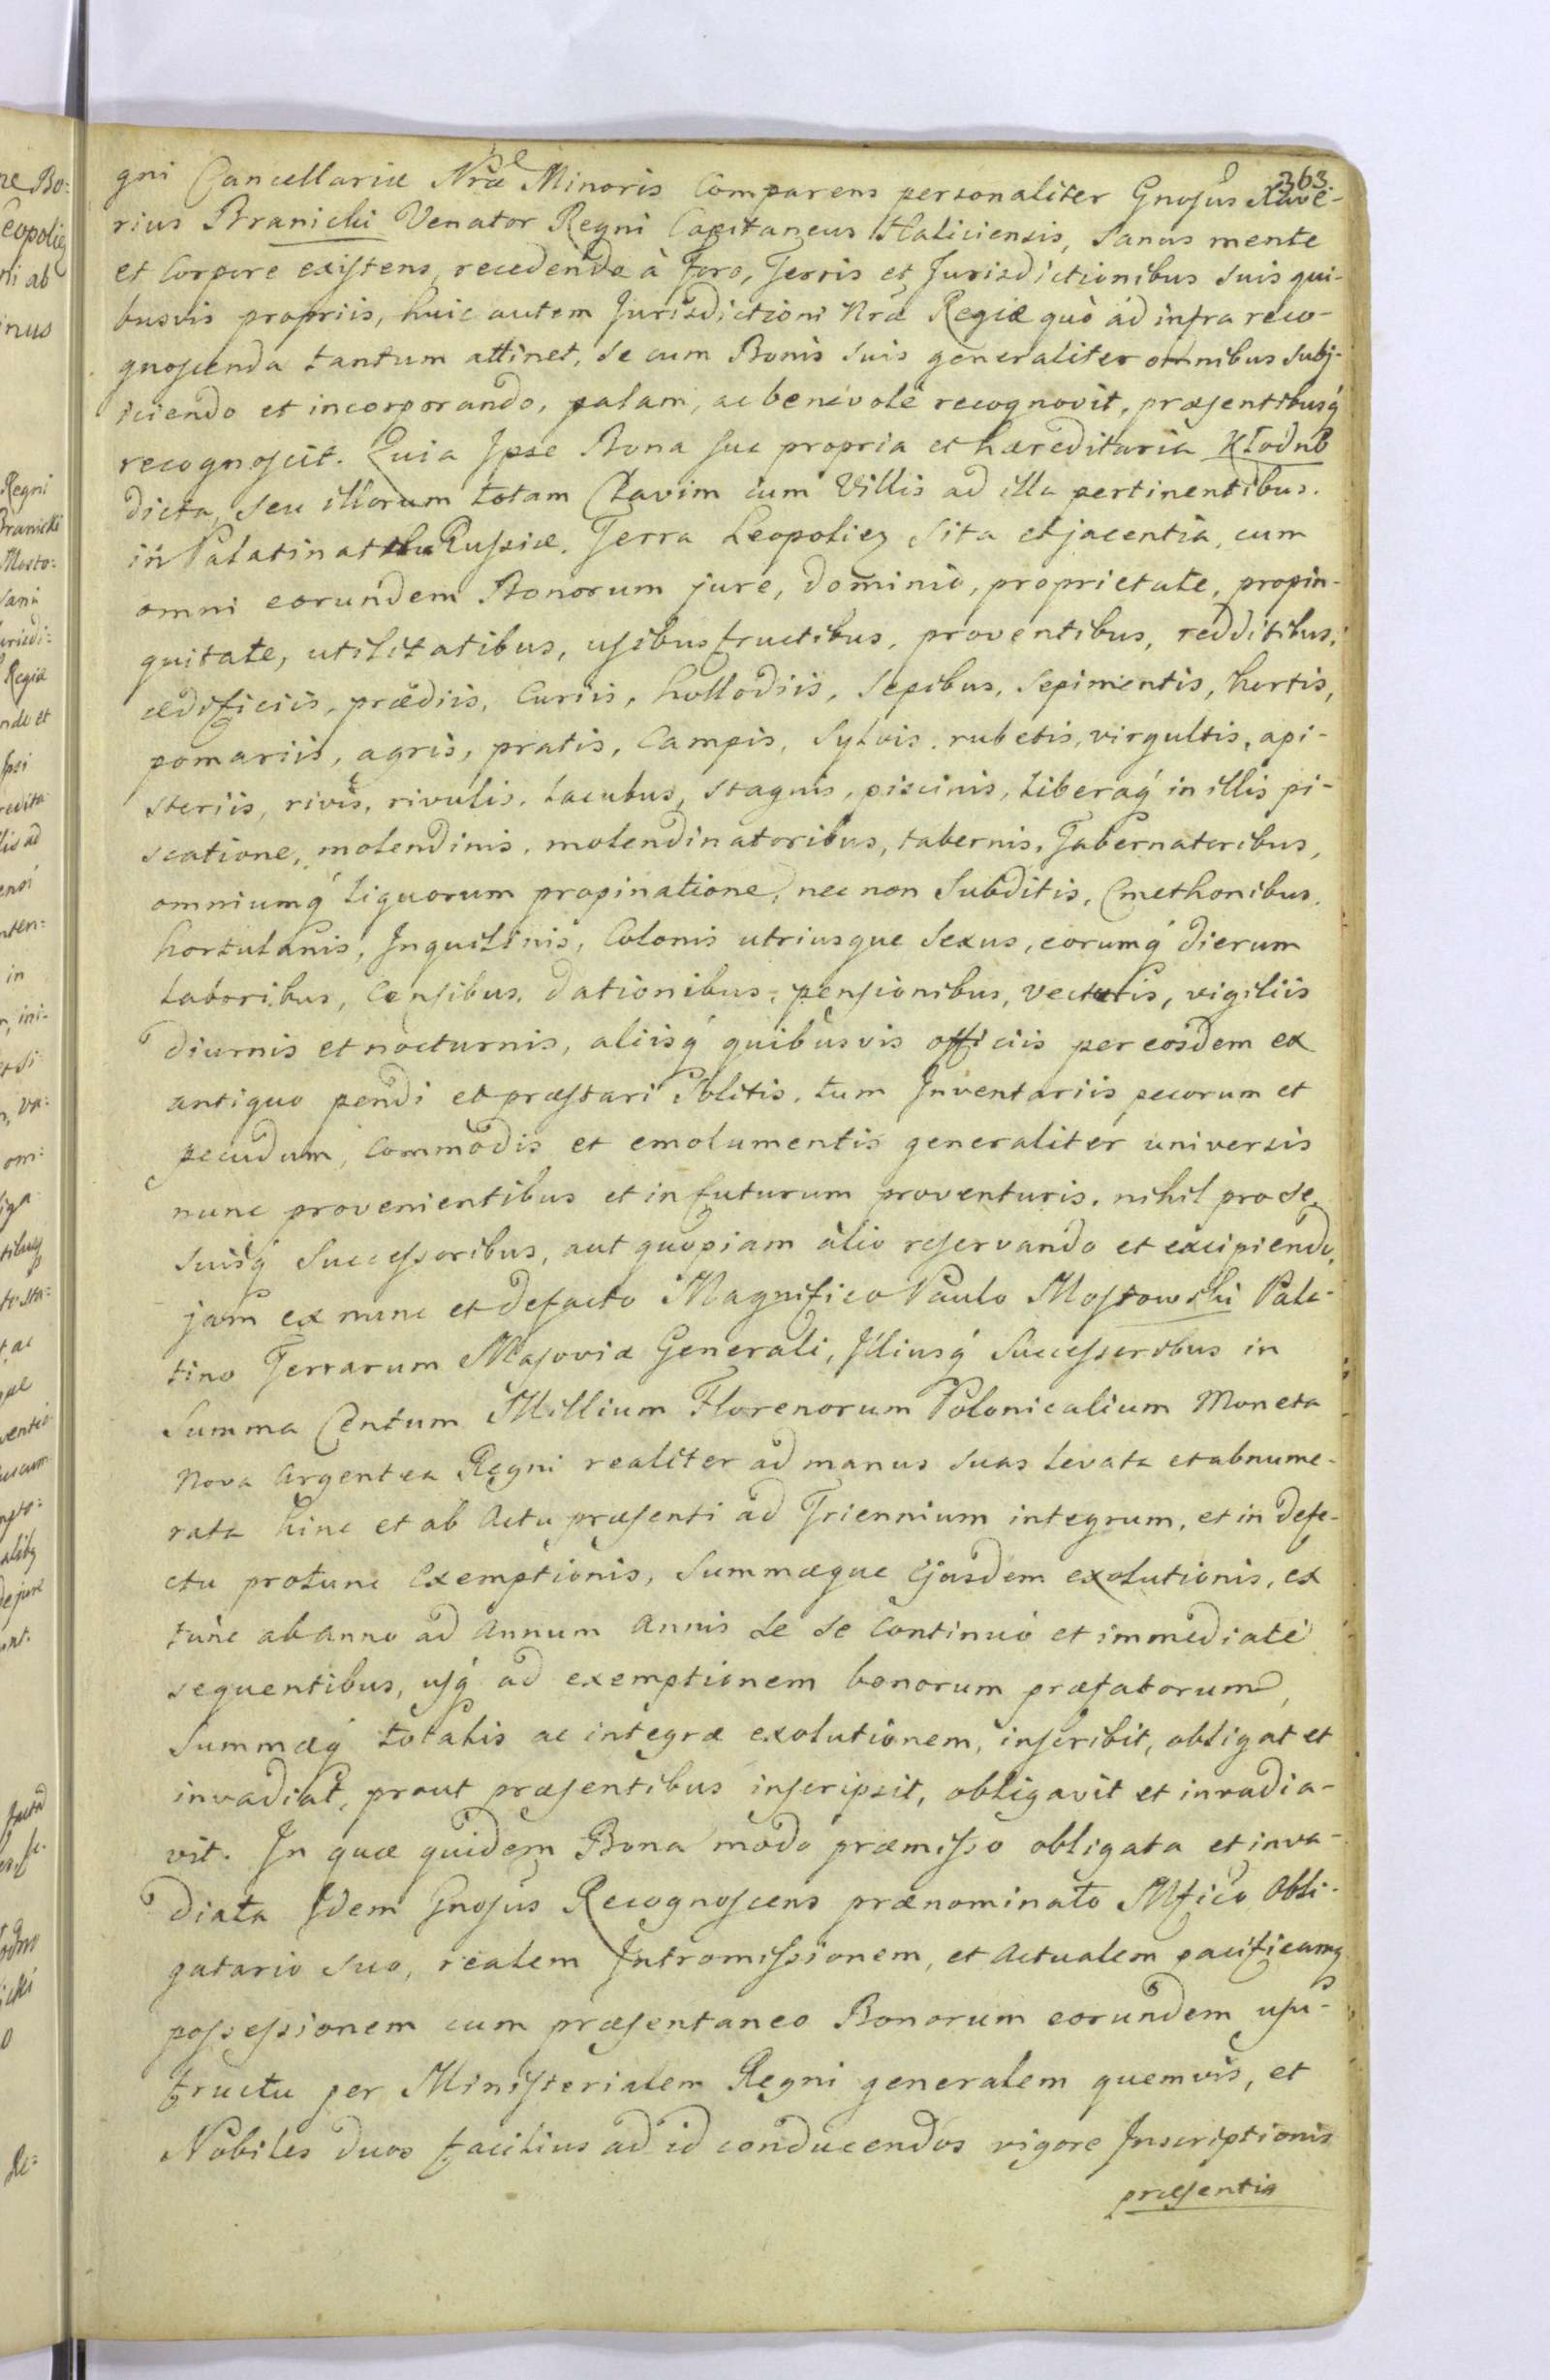 363.
gni Cancellariæ Nræ Minoris Comparens personaliter Gnosus Xave-
rius Branicki Venator Regni Capitaneus Haliciensis, Sanus mente
et Corpore existens, recedendo à Foro, Terris et Jurisdictionibus Suis qui-
busvis propriis, huic autem Jurisdictioni Nræ Regiæ quò ad infra reco-
gnoscenda tantum attinet, Se cum Bonis Suis generaliter omnibus Subj-
iciendo et incorporando, palam, ac benevolè recognovit, præsentibusq́
recognoscit. Quia Ipse Bona Sua propria et hæreditaria Kłodno
dicta, Seu illorum totam Clavim cum Villis ad illa pertinentibus.
in Palatinatu Russiæ, Terra Leopolien Sita et jacentia, cum
omni eorundem Bonorum jure, dominio, proprietate, propin-
quitate, utilitatibus, usibusfructibus, proventibus, redditibus,
ædificiis, prædiis, Curiis, hollodiis, Sepibus, Sepimentis, hortis,
pomariis, agris, pratis, Campis, Sylvis, rubetis, virgultis, api-
steriis, rivis, rivulis, Lacubus, Stagnis, piscinis, Liberaq́ in illis pi-
scatione, molendinis, molendinatoribus, tabernis, Tabernatoribus,
omniumq́ Liquorum propinatione, nec non Subditis, Cmethonibus,
hortulanis, Inquilinis, Colonis utriusque Sexus, eorumq́ dierum
Laboribus, Censibus, dationibus, pensionibus, vectutis, vigiliis
diurnis et nocturnis, aliisq́ quibusvis officiis per eosdem ex
antiquo pendi et præstari Solitis, tum Inventariis pecorum et
pecudum, Commodis et emolumentis generaliter universis
nunc provenientibus et in futurum proventuris, nihil pro Se,
Suisq́ Successoribus, aut quopiam alio reservando et excipiendo,
jam ex nunc et de facto Magnifico Paulo Mostowski Pala-
tino Terrarum Masoviæ Generali, Illiusq́ Successoribus in
Summa Centum Millium Florenorum Polonicalium Moneta
Nova Argentea Regni realiter ad manus Suas Levata et abnume-
rata hinc et ab Actu præsenti ad Triennium integrum, et in defe-
ctu protunc Exemptionis, Summæque Ejusdem exolutionis, ex
tunc ab anno ad Annum Annis de Se Continuò et immediatè
sequentibus, usq́ ad exemptionem bonorum præfatorum,
Summæq́ totalis ac integræ exolutionem, inscribit, obligat et
invadiat, prout præsentibus inscripsit, obligavit et invadia-
vit. In quæ quidem Bona modo præmisso obligata et inva-
diata Idem Gnosus Recognoscens prænominato Mfico Obli-
gatario Suo, realem Intromissionem, et Actualem pacificamq́
possessionem cum præsentaneo Bonorum eorundem usu-
fructu per Ministerialem Regni generalem quemvis, et
Nobiles duos facilius ad id conducendos vigore Inscriptionis
præsentis